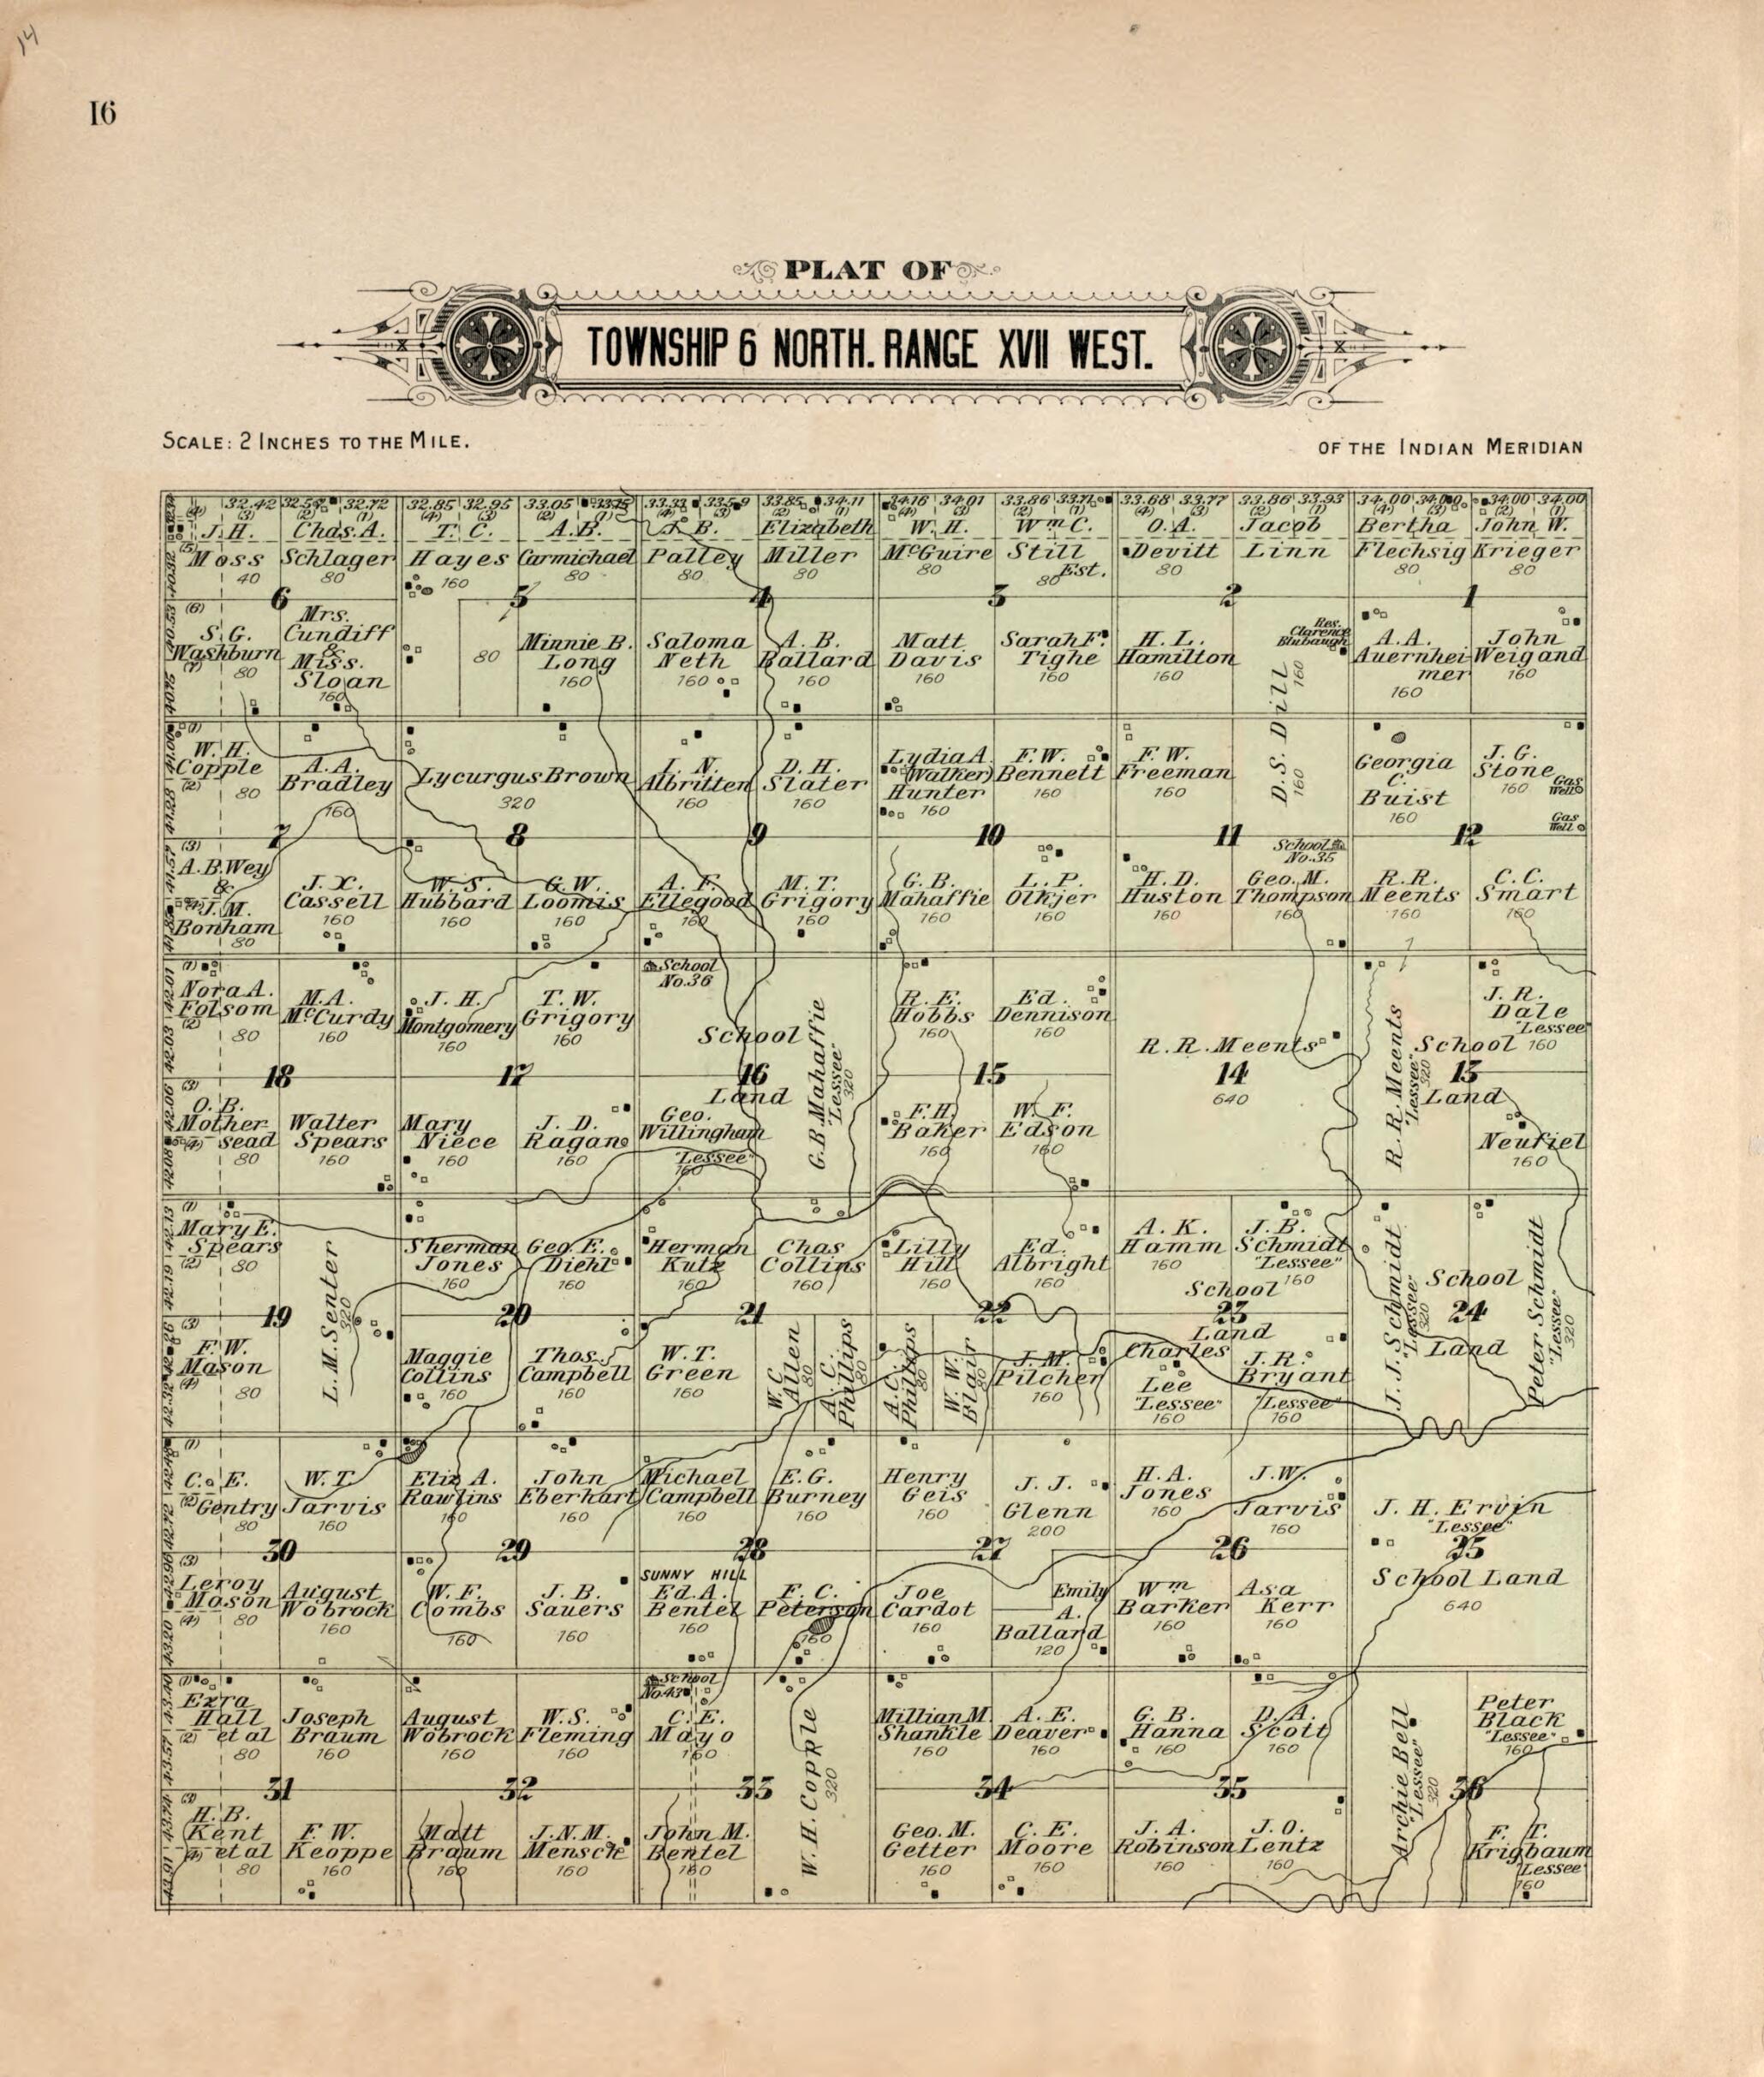 14
16
PLAT OF
TOWNSHIP 6 NORTH. RANGE XVII WEST.
SCALE: 2 INCHES TO THE MILE.
OF THE INDIAN MERIDIAN
32.42 32.72 32.85 32.95 33.05 33.85 34.11 34.16 34.01 33.86 33.68 33.77 33.86 33.93 34.00 34.00 34.00
(4) (3) (2) (1) (4) (3) (2) (1) (4) (3) (2) (1) (4) (3) (2) (1) (4) (3) (2) (1) (4) (3) (2) (1)
J. H.
Moss
40
Chas. A.
Schlager
80
T. C.
Hayes
160
A. B.
Carmichael
80
B.
Palley
80
Elizabeth
Miller
80
W. H.
McGuire
80
Wm C.
Still
Est.
80
O. A.
Devitt
80
Jacob
Linn
Bertha
Flechsig
80
John W.
Krieger
80
6 5 4 3 2 1
(6)
S. G.
Washburn
(7)
80
Mrs.
Cundiff
&
Miss.
Sloan
160
80
Minnie B.
Long
160
Saloma
Neth
160
A. B.
Ballard
160
Matt
Davis
160
Sarah F.
Tighe
160
H. L.
Hamilton
160
Res.
Clarence
Blubaugh
D. S. Dill
160
160
A. A.
Auernhei
mer
160
John
Weigand
160
(1)
W. H.
Copple
(2)
80
A. A.
Bradley
160
Lycurgus Brown
320
I. N.
Albritten
160
D. H.
Slater
160
Lydia A.
(Walker)
Hunter
160
F. W.
Bennett
160
F. W.
Freeman
160
Georgia
C.
Buist
160
J. G.
Stone
160
Gas
Well
Gas
Well
7 8 9 10 11 12
(3)
A. B. Wey
&
J. M.
Bonham
80
J. X.
Cassell
160
W. S.
Hubbard
160
G. W.
Loomis
160
A. F.
Ellegood
160
M. T.
Grigory
160
G. B.
Mahaffie
160
L. P.
Oltjer
160
H. D.
Huston
160
School
No. 35
Geo. M.
Thompson
160
R. R.
Meents
160
C. C.
Smart
160
(1)
Nora A.
Folsom
(2)
80
M. A.
McCurdy
160
J. H.
Montgomery
160
T. W.
Grigory
160
School
No. 36
School
Land
G. B. Mahaffie
"Lessee"
320
R. E.
Hobbs
160
Ed.
Dennison
160
R. R. Meents
640
R. R. Meents
"Lessee"
320
School
Land
J. R.
Dale
"Lessee"
160
18 17 16 15 14 13
(3)
O. B.
Mother
sead
(4)
80
Walter
Spears
160
Mary
Niece
160
J. D.
Ragan
160
Geo.
Willingham
"Lessee"
160
F. H.
Baker
160
W. F.
Edson
160
Neufiel
160
(1)
Mary E.
Spears
(2)
80
L. M. Senter
320
Sherman
Jones
160
Geo. E.
Diehl
160
Herman
Kutz
160
Chas
Collins
160
Lilly
Hill
160
Ed.
Albright
160
A. K.
Hamm
160
J. B.
Schmidt
"Lessee"
160
School
Land
J. J. Schmidt
"Lessee"
320
School
Land
Peter Schmidt
"Lessee"
320
19 20 21 22 23 24
(3)
F. W.
Mason
(4)
80
Maggie
Collins
160
Thos.
Campbell
160
W. T.
Green
160
W. C.
Allen
80
A. C.
Phillips
80
A. C.
Phillips
80
W. W.
Blair
80
J. M.
Pilcher
160
Charles
Lee
"Lessee"
160
J. R.
Bryant
"Lessee"
160
(1)
C. E.
Gentry
(2)
80
W. T.
Jarvis
160
Eliz A.
Rawlins
160
John
Eberhart
160
Michael
Campbell
160
E. G.
Burney
160
Henry
Geis
160
J. J.
Glenn
200
H. A.
Jones
160
J. W.
Jarvis
160
J. H. Ervin
"Lessee"
School Land
640
30 29 28 27 26 25
(3)
Leroy
Mason
(4)
80
August
Wobrock
160
W. F.
Combs
160
J. B.
Sauers
160
SUNNY HILL
Ed. A.
Bentel
160
F. C.
Peterson
160
Joe
Cardot
160
Emily
A.
Ballard
120
Wm
Barker
160
Asa
Kerr
160
(1)
Ezra
Hall
et al
(2)
80
Joseph
Braum
160
August
Wobrock
160
W. S.
Fleming
160
School
No. 43
C. E.
Mayo
160
W. H. Copple
320
Millian M.
Shankle
160
A. E.
Deaver
160
G. B.
Hanna
160
D. A.
Scott
160
Archie Bell
"Lessee"
320
Peter
Black
"Lessee"
160
31 32 33 34 35 36
(3)
H. B.
Kent
et al
(4)
80
F. W.
Keoppe
160
Matt
Braum
160
J. N. M.
Mensch
160
John M.
Bentel
160
Geo. M.
Getter
160
C. E.
Moore
160
J. A.
Robinson
160
J. O.
Lentz
160
F. T.
Krigbaum
"Lessee"
160